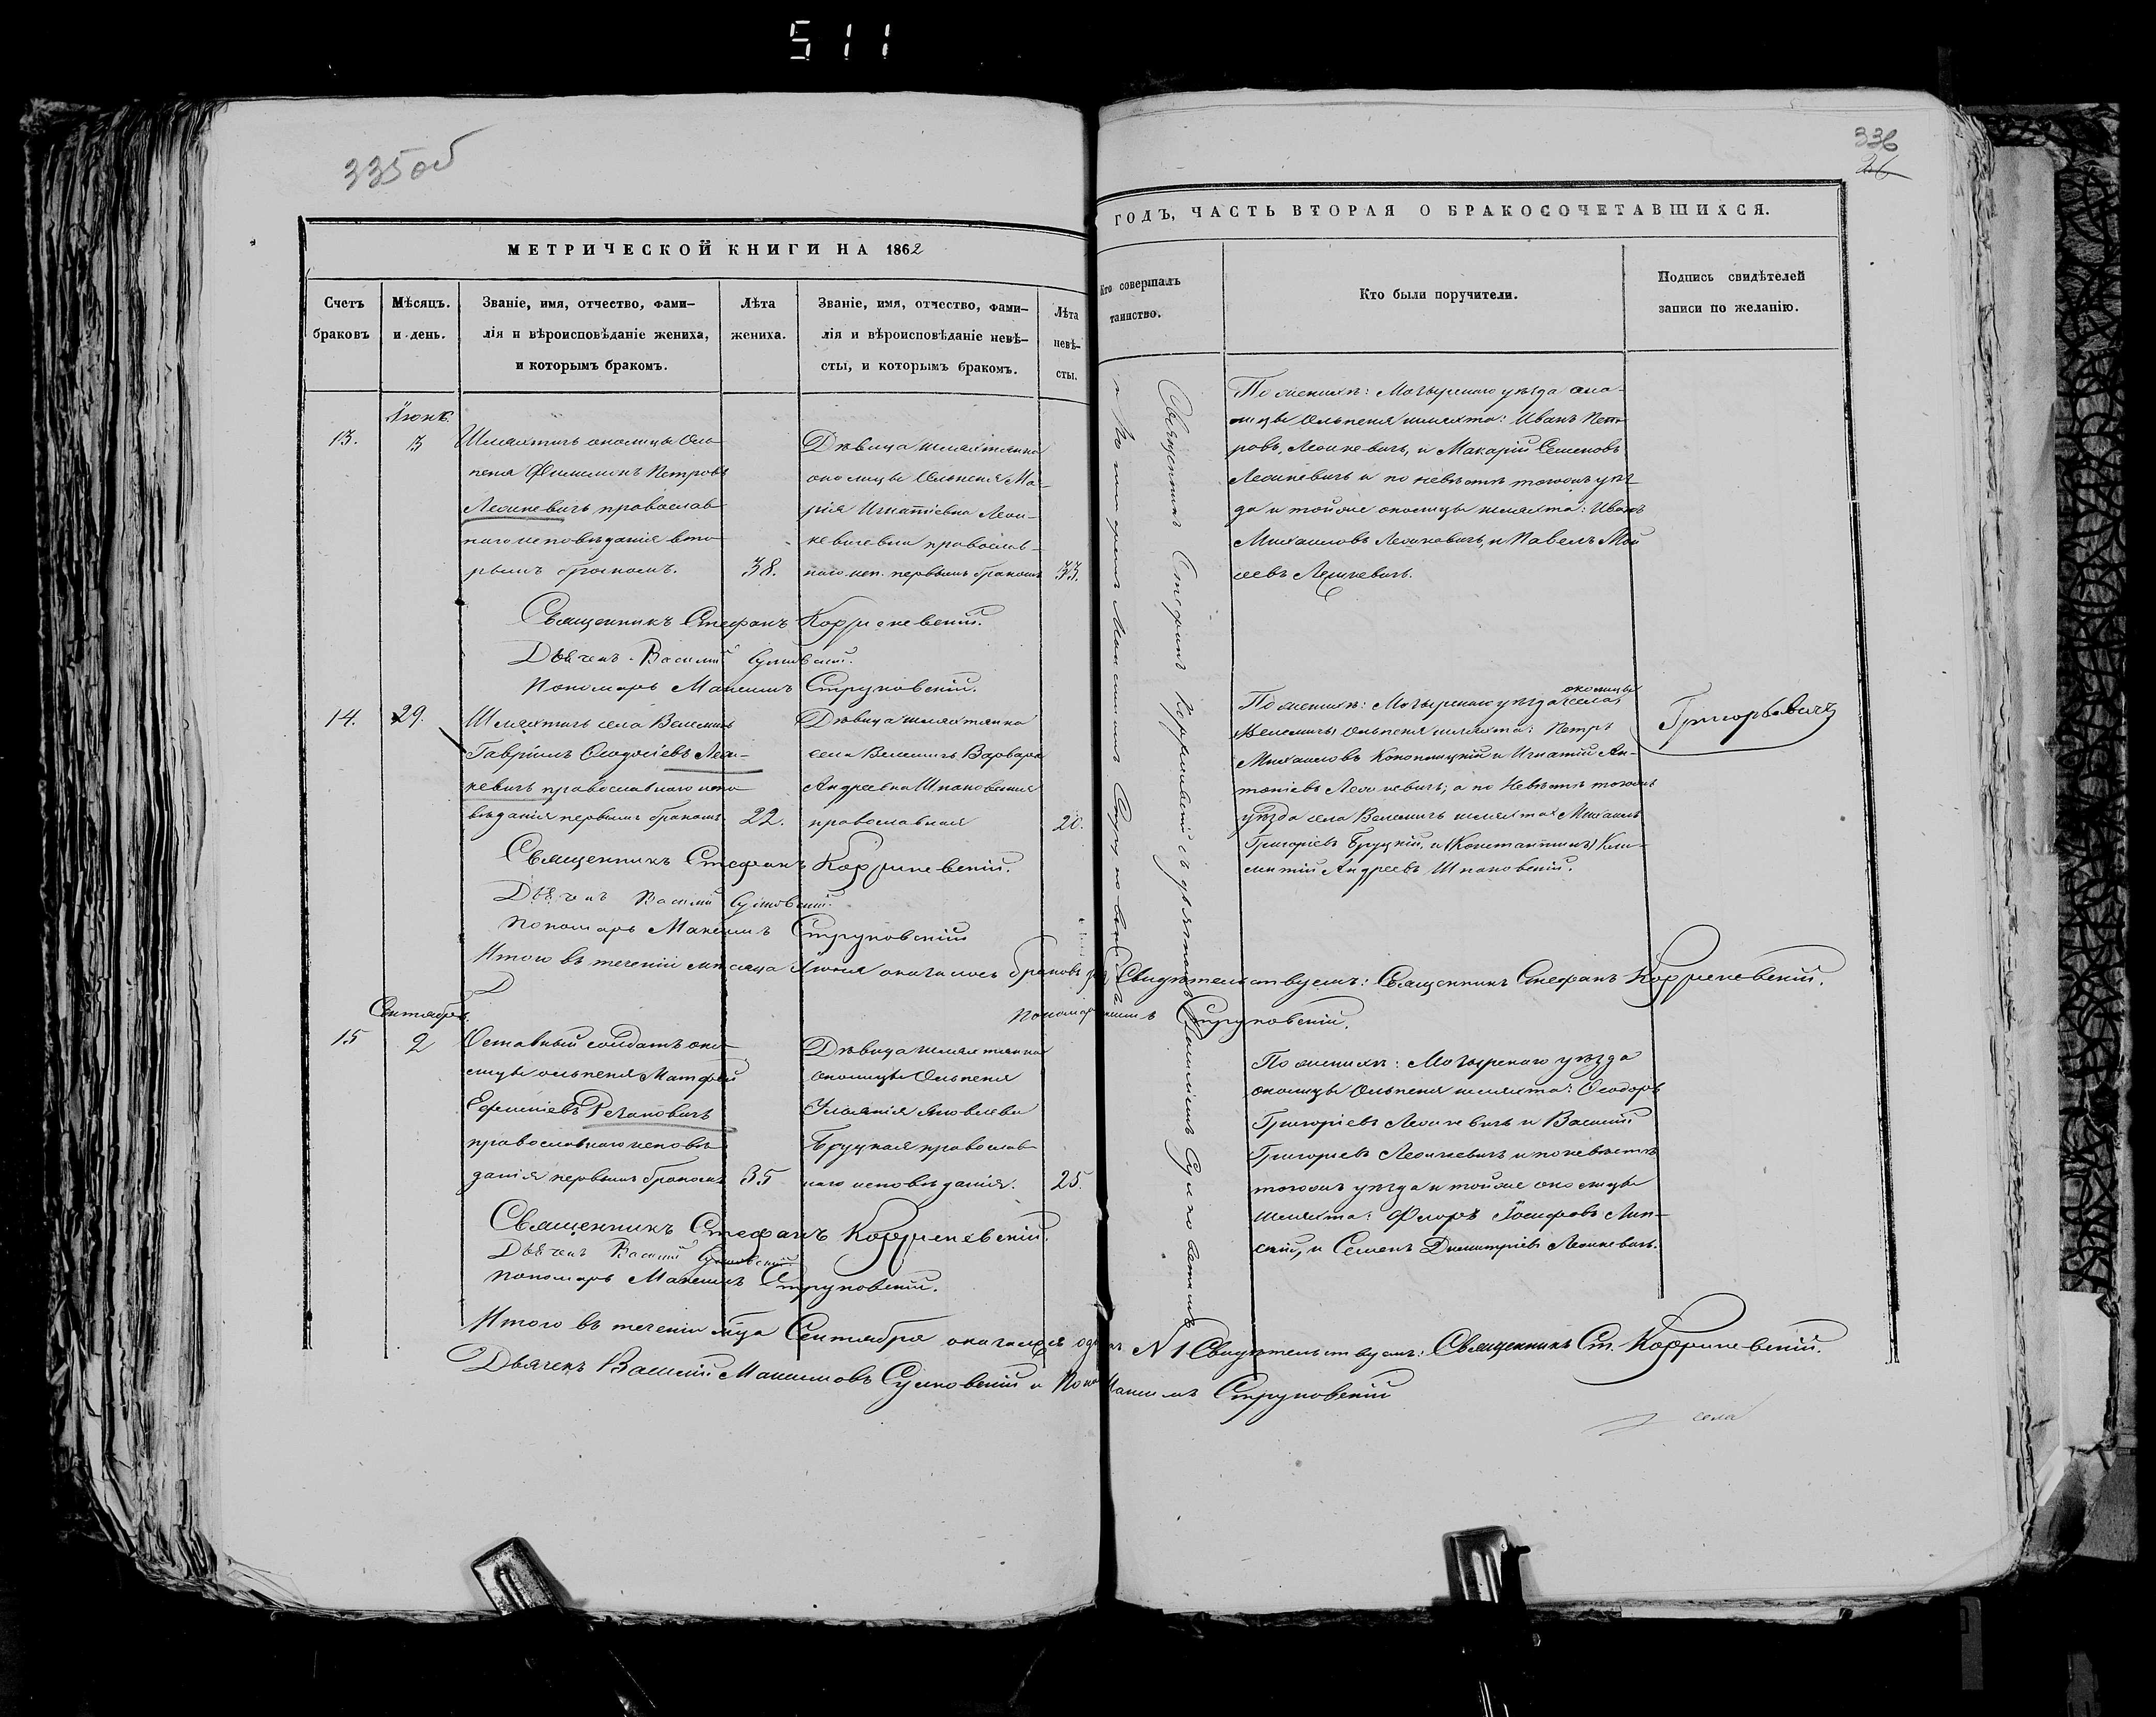 511
335 об
336
26
МЕТРИЧЕСКОЙ КНИГИ НА 1862
ГОДЪ, ЧАСТЬ ВТОРАЯ О БРАКОСОЧЕТАВШИХСЯ.
Счетъ
браковъ
Мѣсяцъ.
и день.
Званіе, имя, отчество, фами-
лія и вѣроисповѣданіе жениха,
и которымъ бракомъ.
Лѣта
жениха.
Званіе, имя, отчество, фами-
лія и вѣроисповѣданіе невѣ-
сты, и которымъ бракомъ.
Лѣта
невѣ-
сты.
Кто совершалъ
таинство.
Кто были поручители.
Подпись свидѣтелей
записи по желанію.
13.
Іюня.
3
Шляхтичъ околицы Оль-
пеня Филимонъ Петровъ
Леошкевичъ православ-
наго исповѣданія вто-
рымъ бракомъ.
38.
Дѣвица шляхтянка
околицы Ольпеня Ма-
рія Игнатіевна Леош-
кевичевна православ-
наго исп. первымъ бракомъ
33.
Священникъ Стефанъ
По женихѣ: Мозырскаго уѣзда око-
лицы Ольпеня шляхта: Иванъ Пет-
ровъ Леошкевичъ, и Макарій Семеновъ
Леошкевичъ и по невѣстѣ тогожъ уѣз-
да и тойже околицы шляхта: Иванъ
Михаиловъ Леошковичъ, и Павелъ Мой
сеевъ Леошкевичъ.
Священникъ Стефанъ
Дьячекъ Василій Сулковскій.
Пономарь Максимъ Струковскій.
14.
29.
Шляхтичъ села Велемичъ
Гавріилъ Ѳеодосіевъ Леош-
кевичъ православнаго испо
вѣданія первымъ бракомъ
22.
Дѣвица шляхтянка
села Велемичъ Варвара
Андреевна Шпаковская
православная
20.
По женихѣ: Мозырскаго уѣзда села околицы
Велемичъ Ольпеня шляхта: Петръ
Михаиловъ Конопницкій и Игнатій Ан-
тоніевъ Леошкевичъ; а по невѣстѣ тогожъ
уѣзда села Велемичъ шляхта: Михаилъ
Григоріевъ Бруцкій, и (Константинъ) Кли-
ментій Андреевъ Шпаковскій.
Григорьевичъ
Священникъ Стефанъ
Дьячекъ Василій Сулковскій.
Пономарь Максимъ Струковскій
Итого въ теченіи мѣсяца Іюня оказалось браковъ
Свидѣтельствуемъ: Священникъ Стефанъ
Струковскій.
Сентябрь.
15
2
Отставный солдатъ око-
лицы Ольпеня Матфей
Ефиміевъ Резановичъ
православнаго исповѣ
данія первымъ бракомъ
35
Дѣвица шляхтянка
околицы Ольпеня
Іуліанія Яковлева
Бруцкая православ
наго исповѣданія.
25.
По женихѣ: Мозырскаго уѣзда
околицы Ольпеня шляхта: Ѳеодоръ
Григоріевъ Леошкевичъ и Василій
Григорьевъ Леошкевичъ и по невѣстѣ
тогожъ уѣзда и тойже околицы
шляхта: Флоръ Іосифовъ Лип-
скій, и Семенъ Димитріевъ Леошкевичъ.
Священникъ Стефанъ
Дьячекъ Василій Сулковскій
Пономарь Максимъ Струковскій.
Итого въ теченіи мѣсяца Сентября оказалося одинъ N 1 Свидѣтельствуемъ: Священникъ Ст.
Дьячекъ Василій Максимовъ Сулковскій и Максимъ Струковскій
села